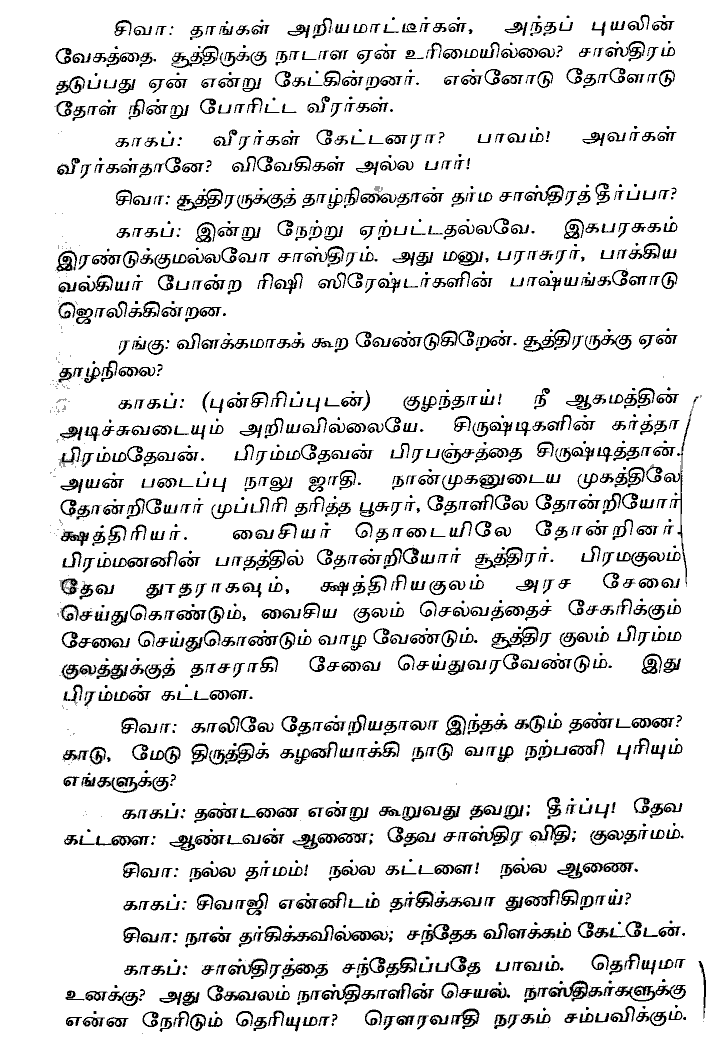 சிவா: தாங்கள் அறியமாட்டீர்கள், அந்தப் புயலின்
வேகத்தை. சூத்திருக்கு நாடாள ஏன் உரிமையில்லை? சாஸ்திரம்
தடுப்பது ஏன் என்று கேட்கின்றனர். என்னோடு தோளோடு
தோள் நின்று போரிட்ட வீரர்கள்.
காகப்: வீரர்கள் கேட்டனரா? பாவம்! அவர்கள்
வீரர்கள்தானே? விவேகிகள் அல்ல பார்!
சிவா: சூத்திரருக்குத் தாழ்நிலைதான் தர்ம சாஸ்திரத்தீர்ப்பா?
காகப்: இன்று நேற்று ஏற்பட்டதல்லவே. இகபரசுகம்
இரண்டுக்குமல்லவோ சாஸ்திரம். அது மனு, பராசுரர், பாக்கிய
வல்கியர் போன்ற ரிஷி ஸிரேஷ்டர்களின் பாஷ்யங்களோடு
ஜொலிக்கின்றன.
ரங்கு: விளக்கமாகக் கூற வேண்டுகிறேன். சூத்திரருக்கு ஏன்
தாழ்நிலை?
காகப்: (புன்சிரிப்புடன்) குழந்தாய்! நீ ஆகமத்தின்
அடிச்சுவடையும் அறியவில்லையே. சிருஷ்டிகளின் கர்த்தா
பிரம்மதேவன். பிரம்மதேவன் பிரபஞ்சத்தை சிருஷ்டித்தான்.
அயன் படைப்பு நாலு ஜாதி. நான்முகனுடைய முகத்திலே
தோன்றியோர் முப்பிரி தரித்த பூசுரர், தோளிலே தோன்றியோர்
க்ஷத்திரியர். வைசியர் தொடையிலே தோன்றினர்.
பிரம்மனனின் பாதத்தில் தோன்றியோர் சூத்திரர். பிரமகுலம்
தேவ தூதராகவும், க்ஷத்திரியகுலம் அரச சேவை
செய்துகொண்டும், வைசிய குலம் செல்வத்தைச் சேகரிக்கும்
சேவை செய்துகொண்டும் வாழ வேண்டும். சூத்திர குலம் பிரம்ம
குலத்துக்குத் தாசராகி சேவை செய்துவரவேண்டும். இது
பிரம்மன் கட்டளை.
சிவா: காலிலே தோன்றியதாலா இந்தக் கடும் தண்டனை?
காடு, மேடு திருத்திக் கழனியாக்கி நாடு வாழ நற்பணி புரியும்
எங்களுக்கு?
காகப்: தண்டனை என்று கூறுவது தவறு; தீர்ப்பு! தேவ
கட்டளை: ஆண்டவன் ஆணை; தேவ சாஸ்திர விதி; குலதர்மம்.
சிவா: நல்ல தர்மம்! நல்ல கட்டளை! நல்ல ஆணை.
காகப்: சிவாஜி என்னிடம் தர்கிக்கவா துணிகிறாய்?
சிவா: நான் தர்கிக்கவில்லை; சந்தேக விளக்கம் கேட்டேன்.
காகப்: சாஸ்திரத்தை சந்தேகிப்பதே பாவம். தெரியுமா
உனக்கு? அது கேவலம் நாஸ்திகாளின் செயல். நாஸ்திகர்களுக்கு
என்ன நேரிடும் தெரியுமா? ரௌரவாதி நரகம் சம்பவிக்கும்.